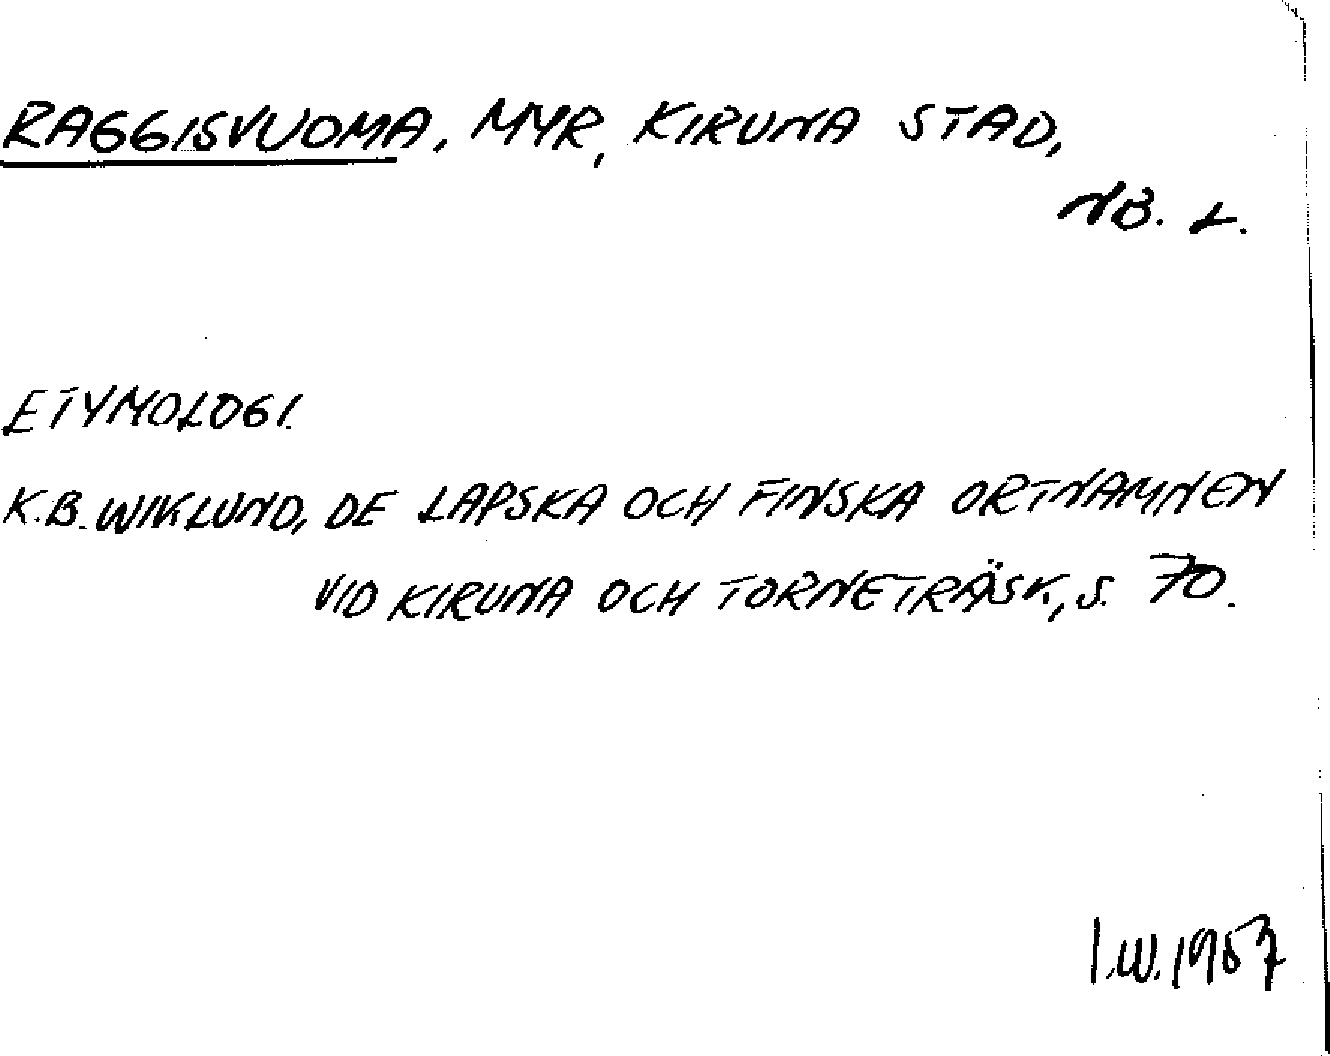 RAGGISVUOMA, MYR, KIRUNA STAD,
NB. L.
ETYMOLOGI.
K.B. WIKLUND, DE LAPSKA OCH FINSKA ORTNAMNEN
VID KIRUNA OCH TORNETRÄSK, S. 70.
I.W. 1957